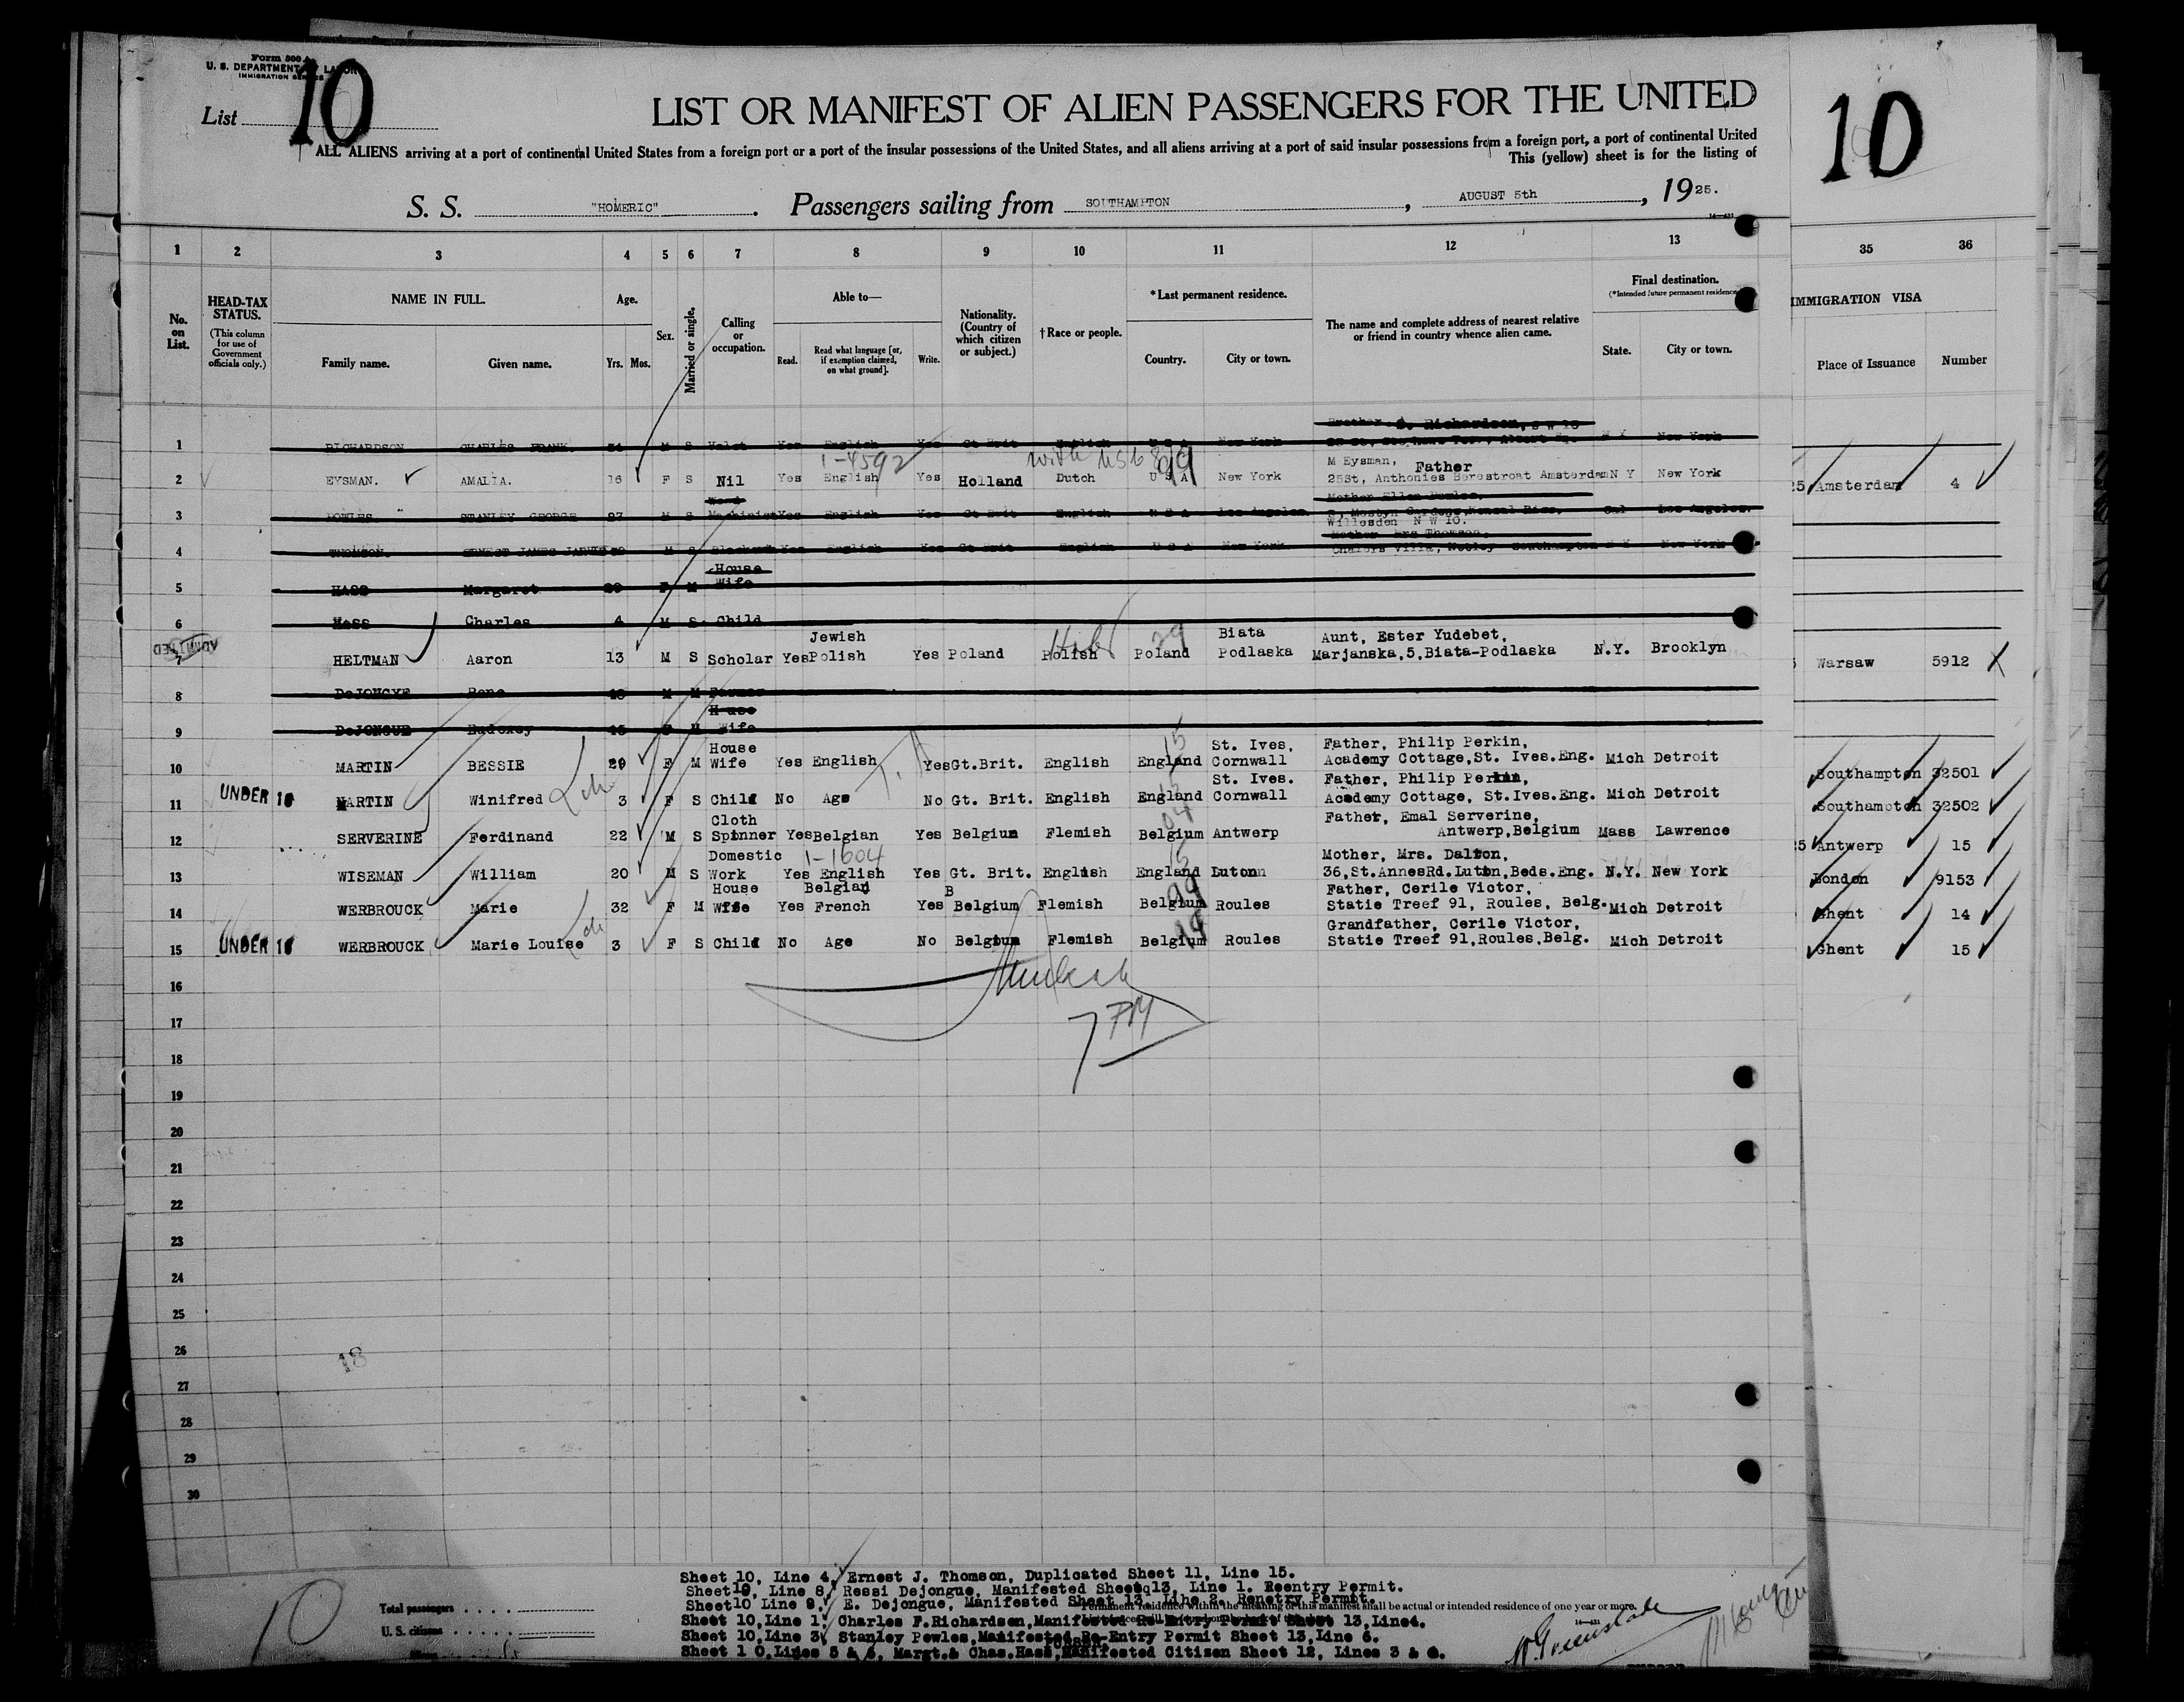 Form 500
U. S. DEPARTMENT OF LABOR
IMMIGRATION SERVICE
List 10
10
LIST OR MANIFEST OF ALIEN PASSENGERS FOR THE UNITED
ALL ALIENS arriving at a port of continental United States from a foreign port or a port of the insular possessions of the United States, and all aliens arriving at a port of said insular possessions from a foreign port, a port of continental United
This (yellow) sheet is for the listing of
S. S. "HOMERIC". Passengers sailing from SOUTHAMPTON, AUGUST 5th, 1925.
1 2 3 4 5 6 7 8 9 10 11 12 13 35 36
No. on List.
HEAD-TAX STATUS.
(This column for use of Government officials only.)
NAME IN FULL.
Family name. Given name.
Age.
Yrs. Mos.
Sex.
Married or single.
Calling or occupation.
Able to—
Read. Read what language [or, if exemption claimed, on what ground]. Write.
Nationality. (Country of which citizen or subject.)
†Race or people.
*Last permanent residence.
Country. City or town.
The name and complete address of nearest relative or friend in country whence alien came.
Final destination.
(*Intended future permanent residence
State. City or town.
IMMIGRATION VISA
Place of Issuance Number
1 RICHARDSON CHARLES FRANK. M S Valet Yes English Yes Gt Brit English U S A New York Brother. Richardson, S W 15 N Y New York
1-4592
2 EYSMAN. AMALIA. 16 F S Nil Yes English Yes Holland Dutch U S A New York M Eysman, Father 25St, Anthonies Berestroat Amsterdam N Y New York Amsterdam 4
3 POWLES. STANLEY GEORGE 27 M S Machinist Yes English Yes Gt Brit English U S A Los Angeles. Willesden N W 10. Cal Los Angeles.
4 THOMSON. ERNEST JAMES JARVIS M S Yes English Yes Gt Brit English U S A New York Mother Mrs Thomson, Villa, Netley Southampton N Y New York
5 HASS Margaret F M House Wife
6 Hass Charles 4 M S Child
ADMITTED
7 HELTMAN Aaron 13 M S Scholar Yes Jewish Polish Yes Poland Polish Poland Biata Podlaska Aunt, Ester Yudebet, Marjanska,5,Biata-Podlaska N.Y. Brooklyn Warsaw 5912
8 DeJONGYE Rene M M Farmer
9 DeJONGUE Eudoxey 45 F M House Wife
10 MARTIN BESSIE 29 F M House Wife Yes English Yes Gt.Brit. English England St. Ives, Cornwall Father, Philip Perkin, Academy Cottage,St. Ives.Eng. Mich Detroit Southampton 32501
11 UNDER 16 MARTIN Winifred 3 F S Child No Age No Gt. Brit. English England St. Ives. Cornwall Father, Philip Perkin, Academy Cottage, St.Ives.Eng. Mich Detroit Southampton 32502
12 SERVERINE Ferdinand 22 M S Cloth Spinner Yes Belgian Yes Belgium Flemish Belgium Antwerp Father, Emal Serverine, Antwerp,Belgium Mass Lawrence Antwerp 15
1-1604
13 WISEMAN William 20 M S Domestic Work Yes English Yes Gt. Brit. English England Luton Mother, Mrs. Dalton, 36,St.AnnesRd.Luton,Beds.Eng. N.Y. New York London 9153
14 WERBROUCK Marie 32 F M House Wife Yes Belgian French Yes Belgium Flemish Belgium Roules Father, Cerile Victor, Statie Treef 91, Roules, Belg. Mich Detroit Ghent 14
15 UNDER 16 WERBROUCK Marie Louise 3 F S Child No Age No Belgium Flemish Belgium Roules Grandfather, Cerile Victor, Statie Treef 91,Roules,Belg. Mich Detroit Ghent 15
16
17
18
19
20
21
22
23
24
25
26
27
28
29
30
18
10
Total passengers
U. S. citizens
Sheet 10, Line 4, Ernest J. Thomson, Duplicated Sheet 11, Line 15.
Sheet 10, Line 8, Ressi Dejongue, Manifested Sheet 13, Line 1. Reentry Permit.
Sheet10 Line 9. E. Dejongue, Manifested Sheet 13, Line 2. Renetry Permit.
Permanent residence within the meaning of this manifest shall be actual or intended residence of one year or more.
Sheet 10,Line 1. Charles F.Richardson,Manifested Re-Entry Permit Sheet 13,Line4.
Sheet 10,Line 3, Stanley Powles,Manifested Re-Entry Permit Sheet 13,Line 6.
Sheet 1 0,Lines 5 & 6, Margt.& Chas.Hass,Manifested Citizen Sheet 12, Lines 3 &